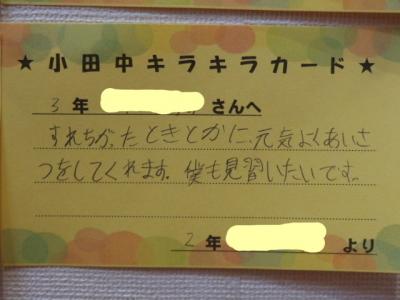 ★小田中キラキラカード★
3年 さんへ
すれちがったときとかに、元気よくあいさ
つをしてくれます。僕も見習いたいです。
2年 より